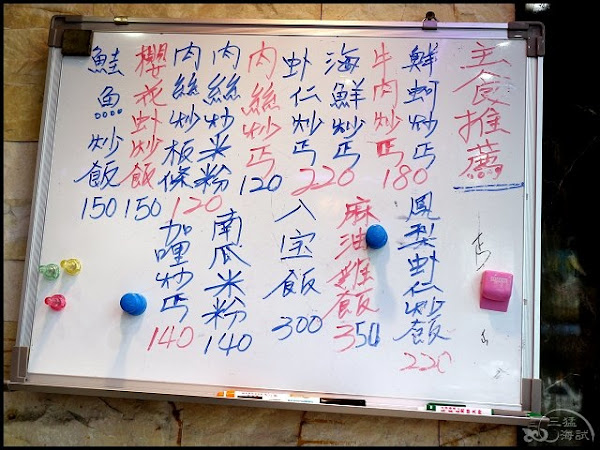 主食推薦
鮮蚵炒丐
牛肉炒丐
180
海鮮炒丐
虾仁炒丐
220
肉絲炒丐
120
肉絲炒米粉
肉絲炒板條
120
櫻花虾炒飯
150
鮭魚炒飯
150
鳳梨虾仁炒飯
220
麻油雞飯
350
八宝飯
300
南瓜米粉
140
加哩炒丐
140
三猛
海試